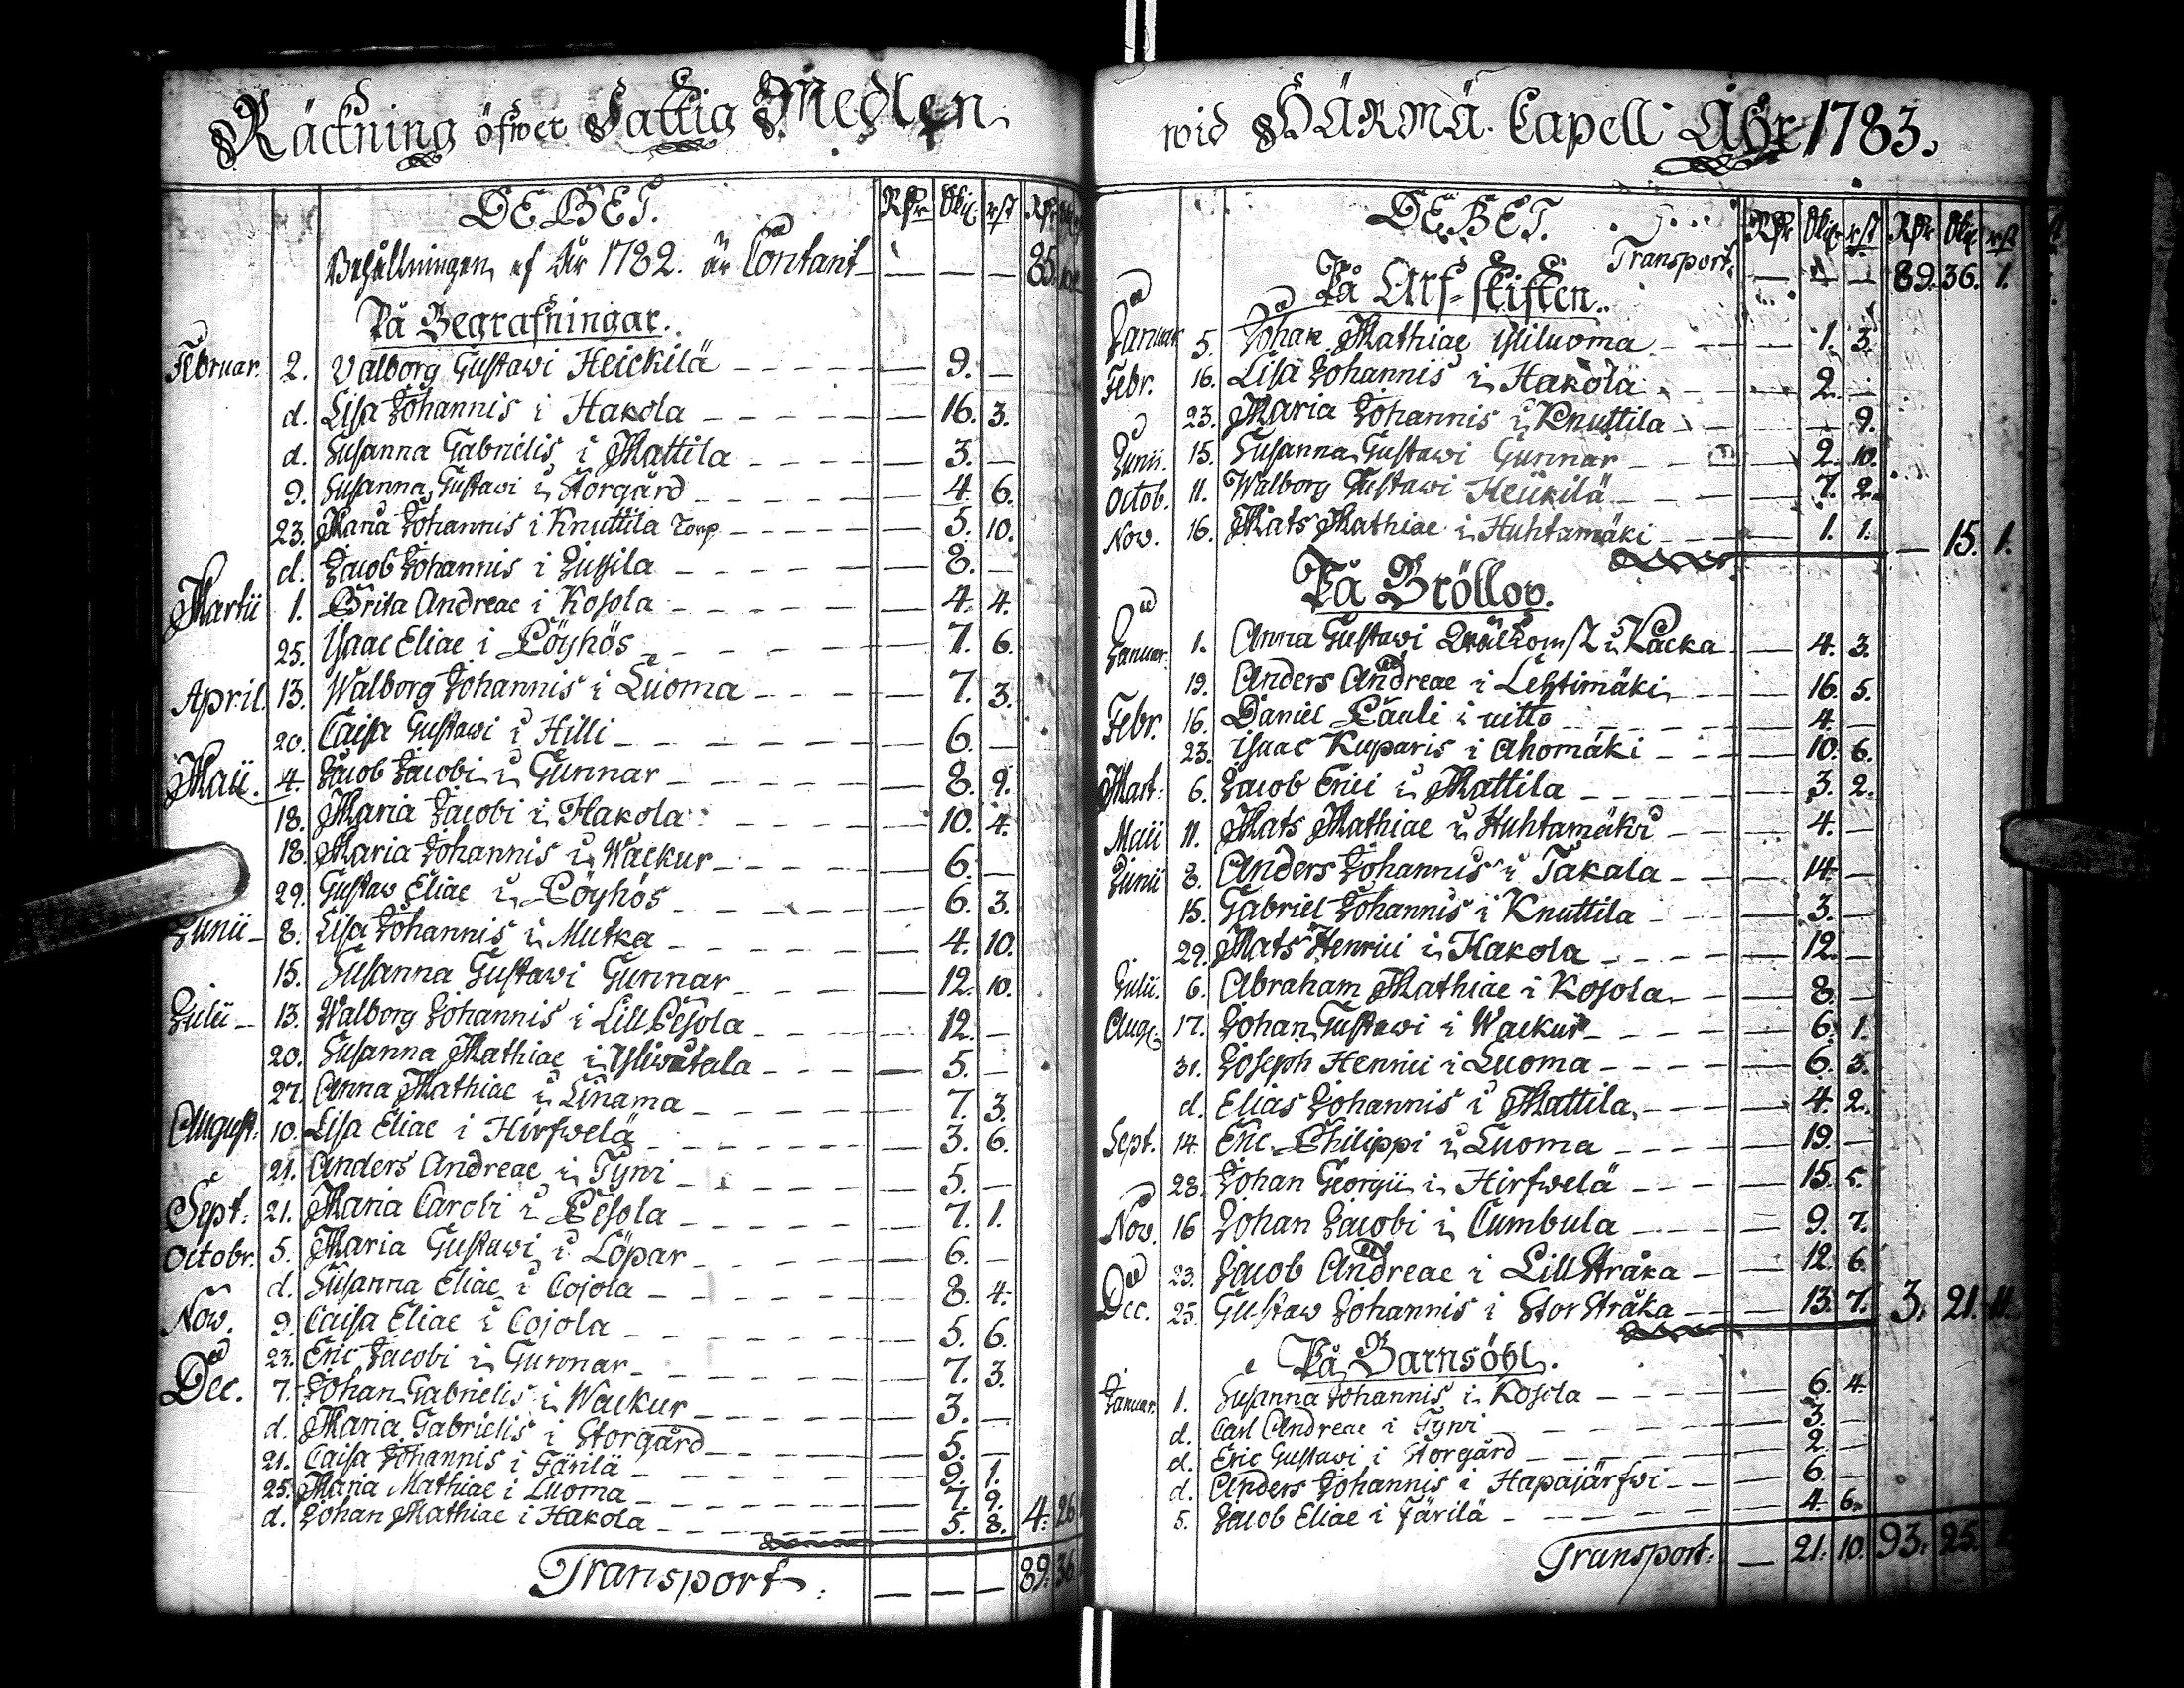 Räckning öfwer Fattig Medlen
DEBET. Rdr Skil. rst Rdr
Behållningen af År 1782. är Contant — — — 85.
På Begrafningar.
Februar. 2. Valborg Gustawi Heickilä — 9. —
d. Lisa Johannis i Hakola — 16. 3.
d. Susanna Gabrielis i Mattila — 3. —
9. Susanna Gustawi i Storgård — 4. 6.
23. Maria Johannis i Knuttila Torp — 5. 10.
d. Jacob Johannis i Jussila — 8. —
Martii 1. Brita Andreae i Kosola — 4. 4.
25. Isaac Eliae i Pöyhös — 7. 6.
April. 13. Walborg Johannis i Luoma — 7. 3.
20. Caisa Gustawi i Hilli — 6. —
Maii. 4. Jacob Jacobi i Gunnar — 8. 9.
18. Maria Jacobi i Hakola — 10. 4.
18. Maria Johannis i Wackur — 6. —
29. Gustaw Eliae i Pöyhös — 6. 3.
Junii 8. Lisa Johannis i Mutka — 4. 10.
15. Susanna Gustawi Gunnar — 12. 10.
Julii 13. Walborg Johannis i Lill Pesola — 12. —
20. Susanna Mathiae i Yliwitala — 5. —
27. Anna Mathiae i Linama — 7. 3.
August. 10. Lisa Eliae i Hirfwelä — 3. 6.
21. Anders Andreae i Tyni — 5. —
Sept. 21. Maria Caroli i Pesola — 7. 1.
Octobr. 5. Maria Gustawi i Löpar — 6. —
d. Susanna Eliae i Cojola — 8. 4.
Now. 9. Caisa Eliae i Cojola — 5. 6.
23. Eric Jacobi i Gunnar — 7. 3.
Dec. 7. Johan Gabrielis i Wackur — 3. —
d. Maria Gabrielis i Storgård — 5. —
21. Caisa Johannis i Färilä — 9. 1.
25. Maria Mathiae i Luoma — 7. 9.
d. Johan Mathiae i Hakola — 5. 8. 4. 26
Transport. — — — 89. 36
wid HÄRMÄ Capell Åhr 1783.
DEBET. Rdr Skil. rst Rdr Skil. rst
Transport. — — — 89. 36. 1.
På Arf-skiften.
Januar 5. Johan Mathiae Yliluoma — 1. 3.
Febr. 16. Lisa Johannis i Hakola — 2. —
23. Maria Johannis i Knuttila — — 9.
Junii. 15. Susanna Gustawi Gunnar — 2. 10.
Octob. 11. Walborg Gustawi Heickilä — 7. 2.
Now. 16. Mats Mathiae i Huhtamäki — 1. 1. — 15. 1.
På Bröllop.
Januar. 1. Anna Gustawi i Packa — 4. 3.
19. Anders Andreae i Lehtimäki — 16. 5.
Febr. 16. Daniel Pauli i ditto — 4. —
23. Isaac Kuparis i Ahomäki — 10. 6.
Mart. 6. Jacob Erici i Mattila — 3. 2.
Maii 11. Mats Mathiae i Huhtamäki — 4. —
Junii 8. Anders Johannis i Takala — 14. —
15. Gabriel Johannis i Knuttila — 3. —
29. Mats Henrici i Hakola — 12. —
Julii. 6. Abraham Mathiae i Kosola — 8. —
Aug. 17. Johan Gustawi i Wackur — 6. 1.
31. Joseph Henrici i Luoma — 6. 3.
d. Elias Johannis i Mattila — 4. 2.
Sept. 14. Eric Philippi i Luoma — 19. —
28. Johan Georgii i Hirfwelä — 15. 5.
Now. 16 Johan Jacobi i Cumbula — 9. 7.
23. Jacob Andreae i Lill Stråka — 12. 6.
Dec. 25. Gustaw Johannis i Stor Stråka — 13. 7. 3. 21. 11.
På Barnsöhl.
Januar. 1. Susanna Johannis i Kosola — 6. 4.
d. Carl Andreae i Tyni — 3. —
d. Eric Gustawi i Storgård — 2. —
d. Anders Johannis i Hapajärfwi — 6. —
5. Jacob Eliae i Färilä — 4. 6.
Transport: — 21. 10. 93. 25.